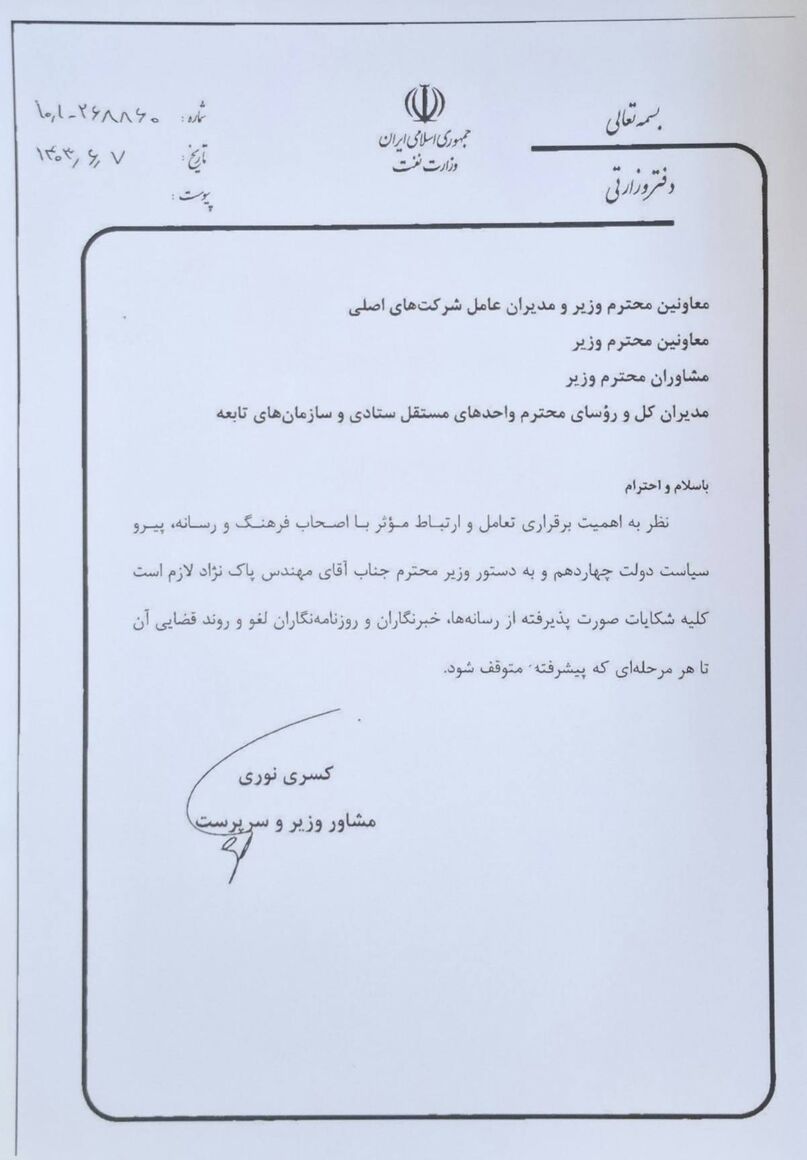 بسمه تعالی
جمهوری اسلامی ایران
وزارت نفت
دفتر وزارتی
شماره: ۲۶۸۸۶۰-۱۰,۱
تاریخ: ۱۴۰۳,۶,۷
پیوست:
معاونین محترم وزیر و مدیران عامل شرکت‌های اصلی
معاونین محترم وزیر
مشاوران محترم وزیر
مدیران کل و رؤسای محترم واحدهای مستقل ستادی و سازمان‌های تابعه
باسلام و احترام
نظر به اهمیت برقراری تعامل و ارتباط مؤثر با اصحاب فرهنگ و رسانه، پیرو
سیاست دولت چهاردهم و به دستور وزیر محترم جناب آقای مهندس پاک نژاد لازم است
کلیه شکایات صورت پذیرفته از رسانه‌ها، خبرنگاران و روزنامه‌نگاران لغو و روند قضایی آن
تا هر مرحله‌ای که پیشرفته متوقف شود.
کسری نوری
مشاور وزیر و سرپرست